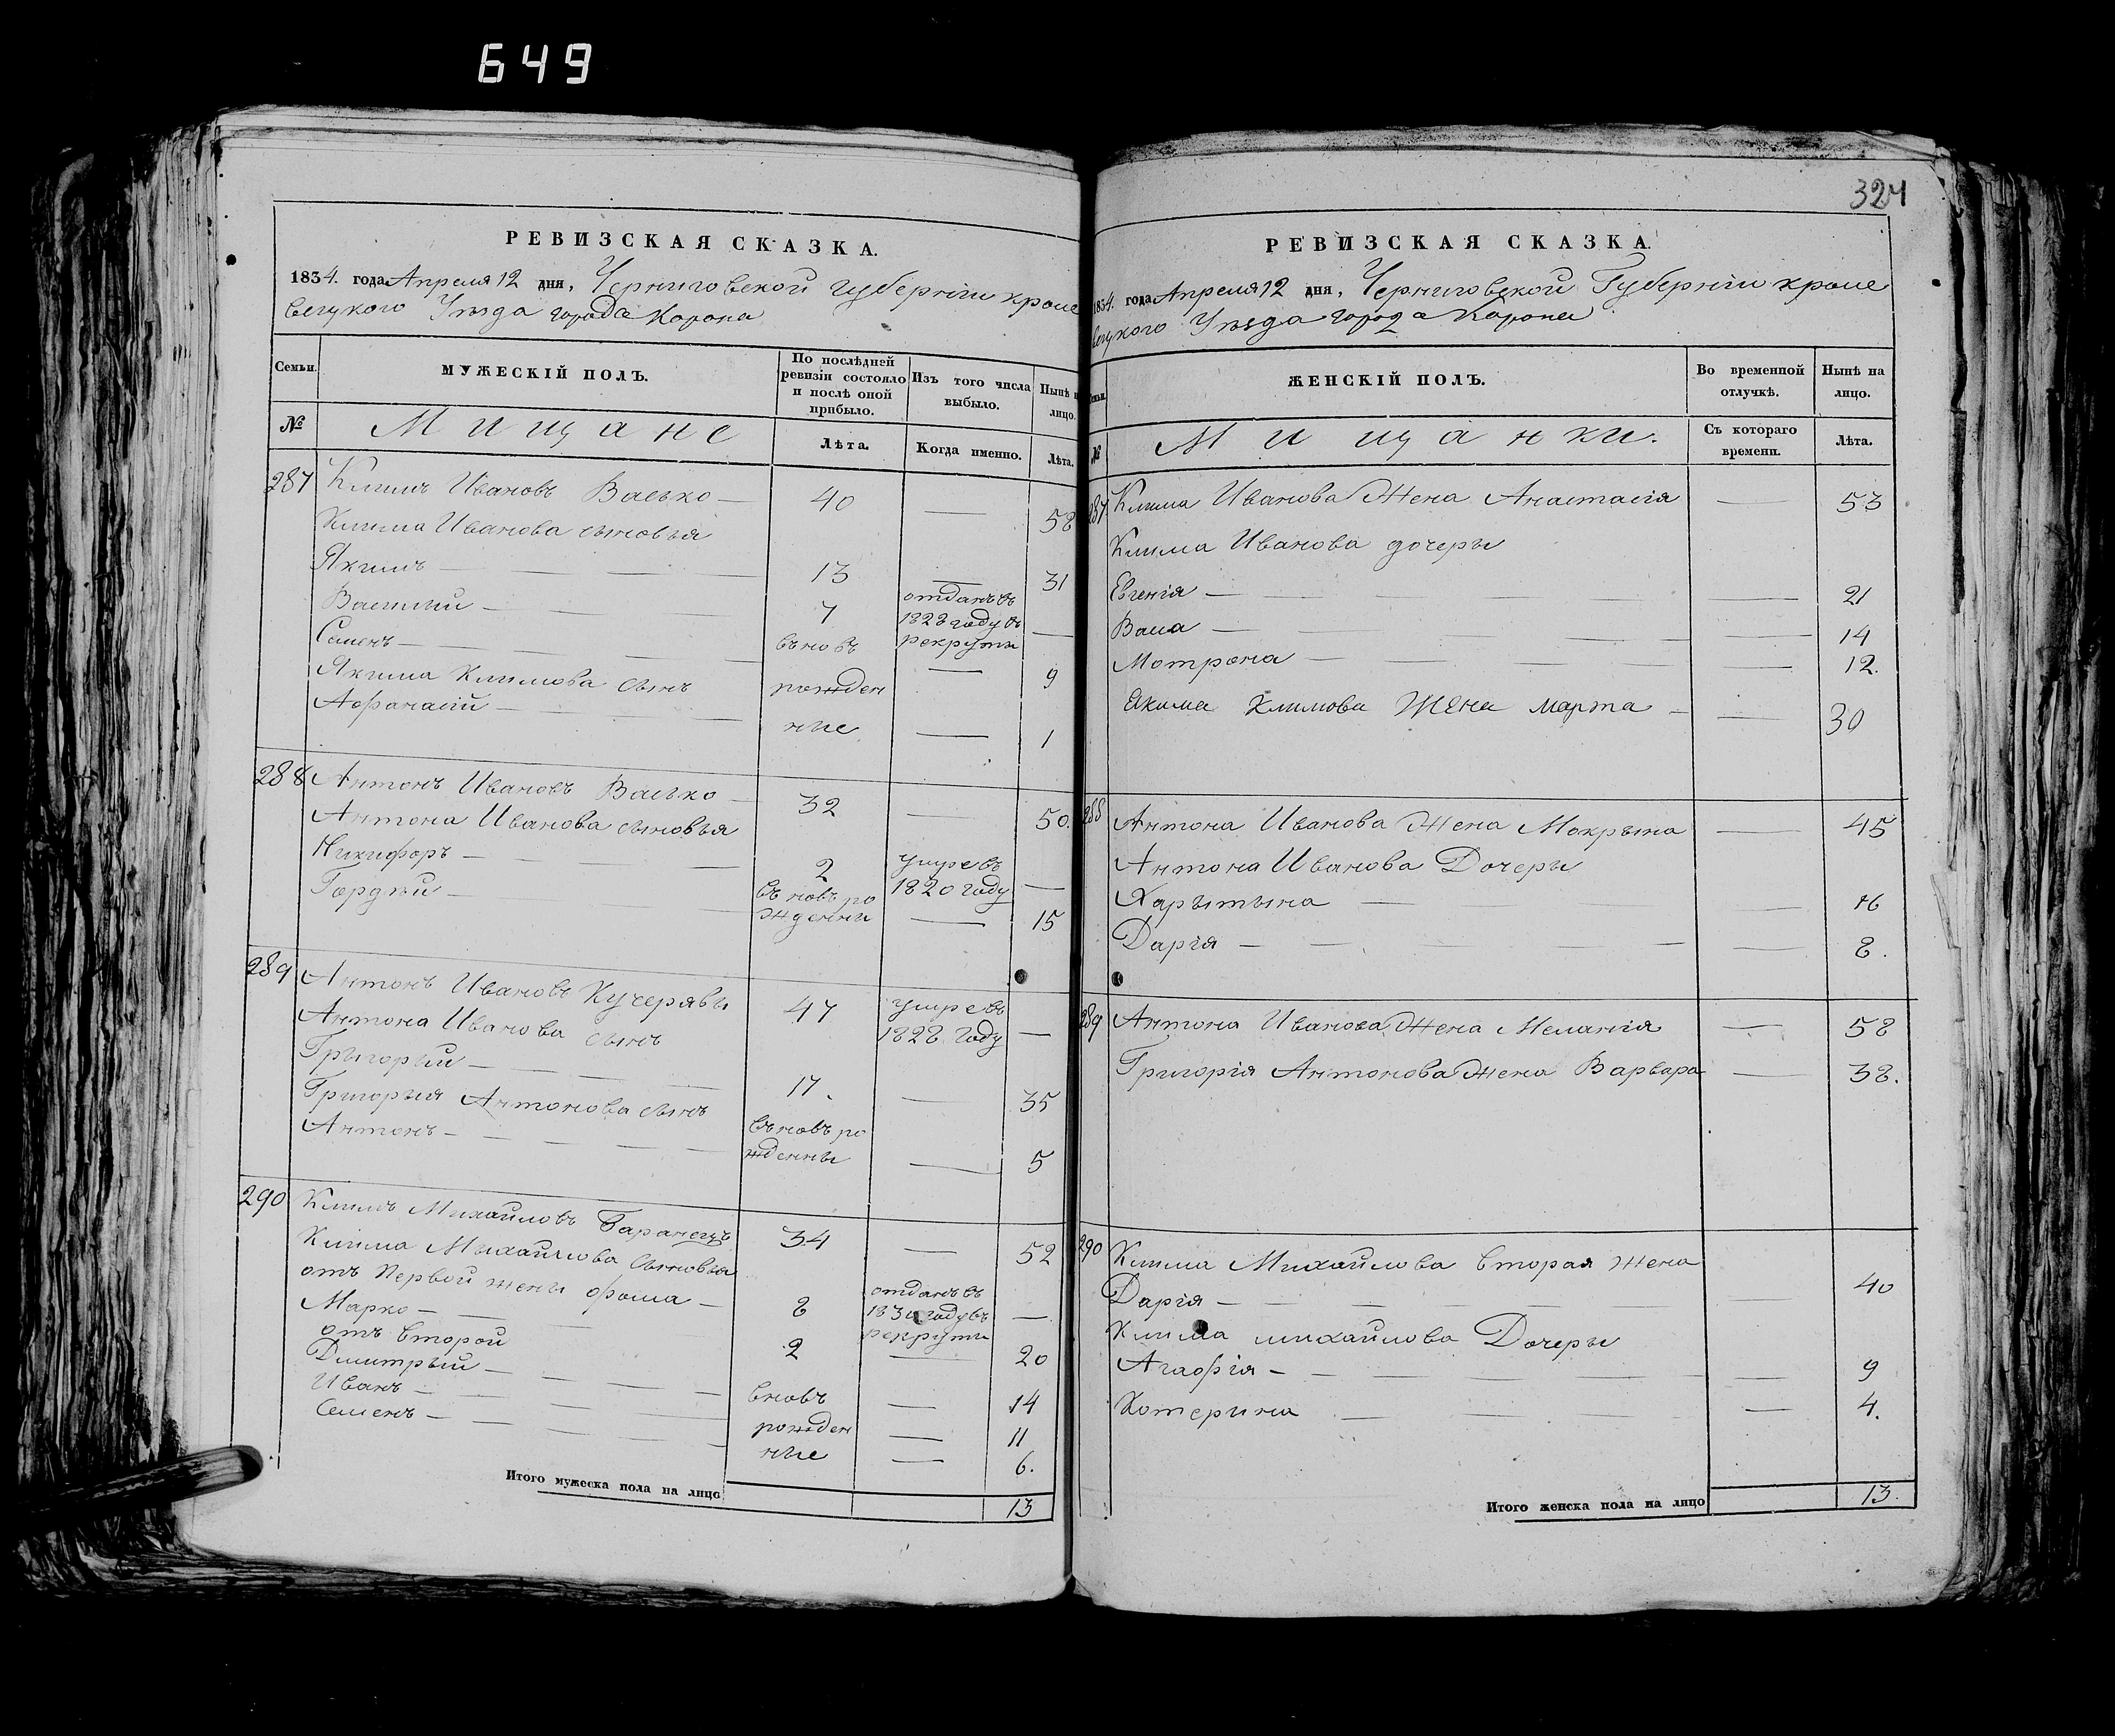 649
РЕВИЗСКАЯ СКАЗКА.
1834. года Апреля 12 дня, Черниговской губернiи кроле
вецкого Уѣзда города Коропа
Семьи.
МУЖЕСКIЙ ПОЛЪ.
По послѣдней ревизiи состояло и послѣ оной прибыло.
Изъ того числа выбыло.
Нынѣ н лицо.
№
Мищане
Лѣта.
Когда именно.
Лѣта.
287 Климъ Ивановъ Васько — 40 — 58
Клима Иванова сыновья
Якимъ — 13 — 31
Василий — 7 отданъ въ 1828 году въ рекруты —
Семенъ — вновь — 9
Якима Климова сынъ рожден
Афанасiй — ные — 1
288 Антонъ Ивановъ Васько — 32 — 50.
Антона Иванова сыновья
Никифоръ — 2 умре въ 1820 году —
Гордѣй — вновь ро жденны — 15
289 Антонъ Ивановъ Кучерявы 47 умре въ 1828 году —
Антона Иванова сынъ
Григорый — 17. — 35
Григорыя Антонова сынъ
Антонъ — вновь ро жденны — 5
290 Климъ Михайловъ Баранецъ 34 — 52
Клима Михайлова сыновья
отъ первой жены фома — 8 отданъ въ 1830 году въ рекруты —
Марко — 2 — 20
отъ второй
Дмитрый — вновь — 14
Иванъ — рожден — 11
Семенъ — ные — 6.
Итого мужеска пола на лицо 13
324
РЕВИЗСКАЯ СКАЗКА.
1834. года Апреля 12 дня, Черниговской Губернiи кроле
вецкого Уѣзда города Коропа
ЖЕНСКIЙ ПОЛЪ.
Во временной отлучкѣ.
Нынѣ на лицо.
№
Мищанки.
Съ котораго времени.
Лѣта.
287 Клима Иванова Жена Анастасiя — 53
Клима Иванова дочеры
Евгенiя — 21
Васа — 14
Мотрона — 12.
Якима Климова Жена марта — 30
288 Антона Иванова Жена Мокрына — 45
Антона Иванова Дочеры
Харытына — 16
Дарiя — 8.
289 Антона Иванова Жена Меланiя — 58
Григорiя Антонова Жена Варвара — 38.
290 Клима Михайлова вторая жена
Дарiя — 40
Клима михайлова Дочеры
Агафiя — 9
Котерина — 4.
Итого женска пола на лицо 13.